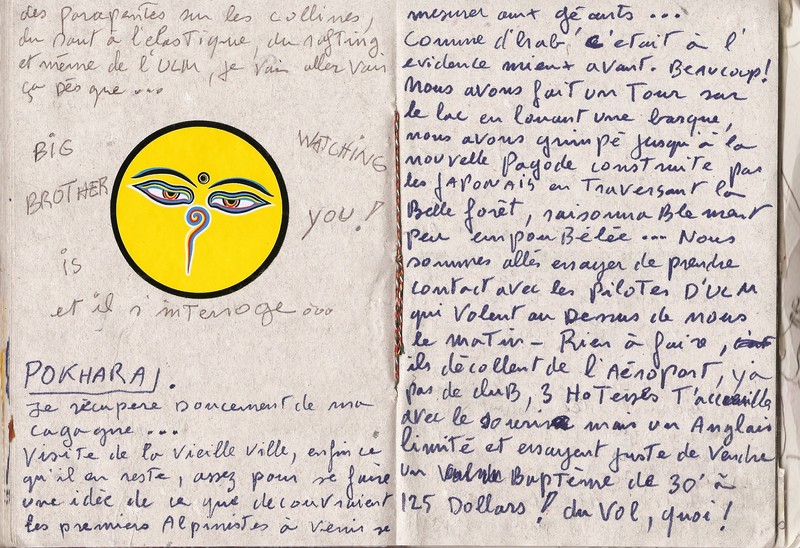 des parapentes sur les collines,
du saut à l'élastique, du rafting
et même de l'ULM, je vais aller voir
ça dès que ...
BIG
BROTHER
is
WATCHING
YOU!
et il s'interroge ...
POKHARA J.
Je récupère Doucement de ma
cagagne ...
Visite de la Vieille Ville, enfin ce
qu'il en reste, assez pour se faire
une idée de ce que découvraient
les premiers Alpinistes à venir se
mesurer aux géants ...
Comme d'hab, c'était à l'
évidence mieux avant. BEAUCOUP!
Nous avons fait un Tour sur
le lac en louant une barque,
nous avons grimpé jusqu'à la
nouvelle Pagode construite par
les JAPONAIS en Traversant la
Belle forêt, raisonnaBlement
peu empouBélée ... Nous
sommes allés essayer de prendre
contact avec les Pilotes D'ULM
qui Volent au Dessus de nous
le matin - Rien à faire,
ils décollent de l'Aéroport, y'a
pas de cluB, 3 Hotesses T'accueille
avec le sourire mais un Anglais
limité et essayent juste de Vendre
un Baptème de 30' à
125 Dollars! du Vol, quoi!